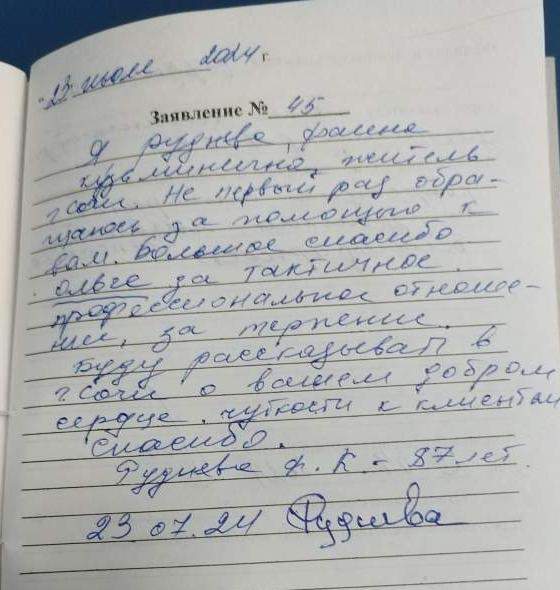 "23" июля 2024 г.
Заявление № 45
Я Руднева, Фаина
Кузьминична, житель
г Сочи. Не первый раз обра-
щаюсь за помощью к
вам. Большое спасибо
Ольге за тактичное
профессиональное отноше-
ние, за терпение.
Буду рассказывать в
г. Сочи о вашем добром
сердце, чуткости к клиентам
Спасибо.
Руднева Ф. К - 87 лет.
23 07.24 Руднева